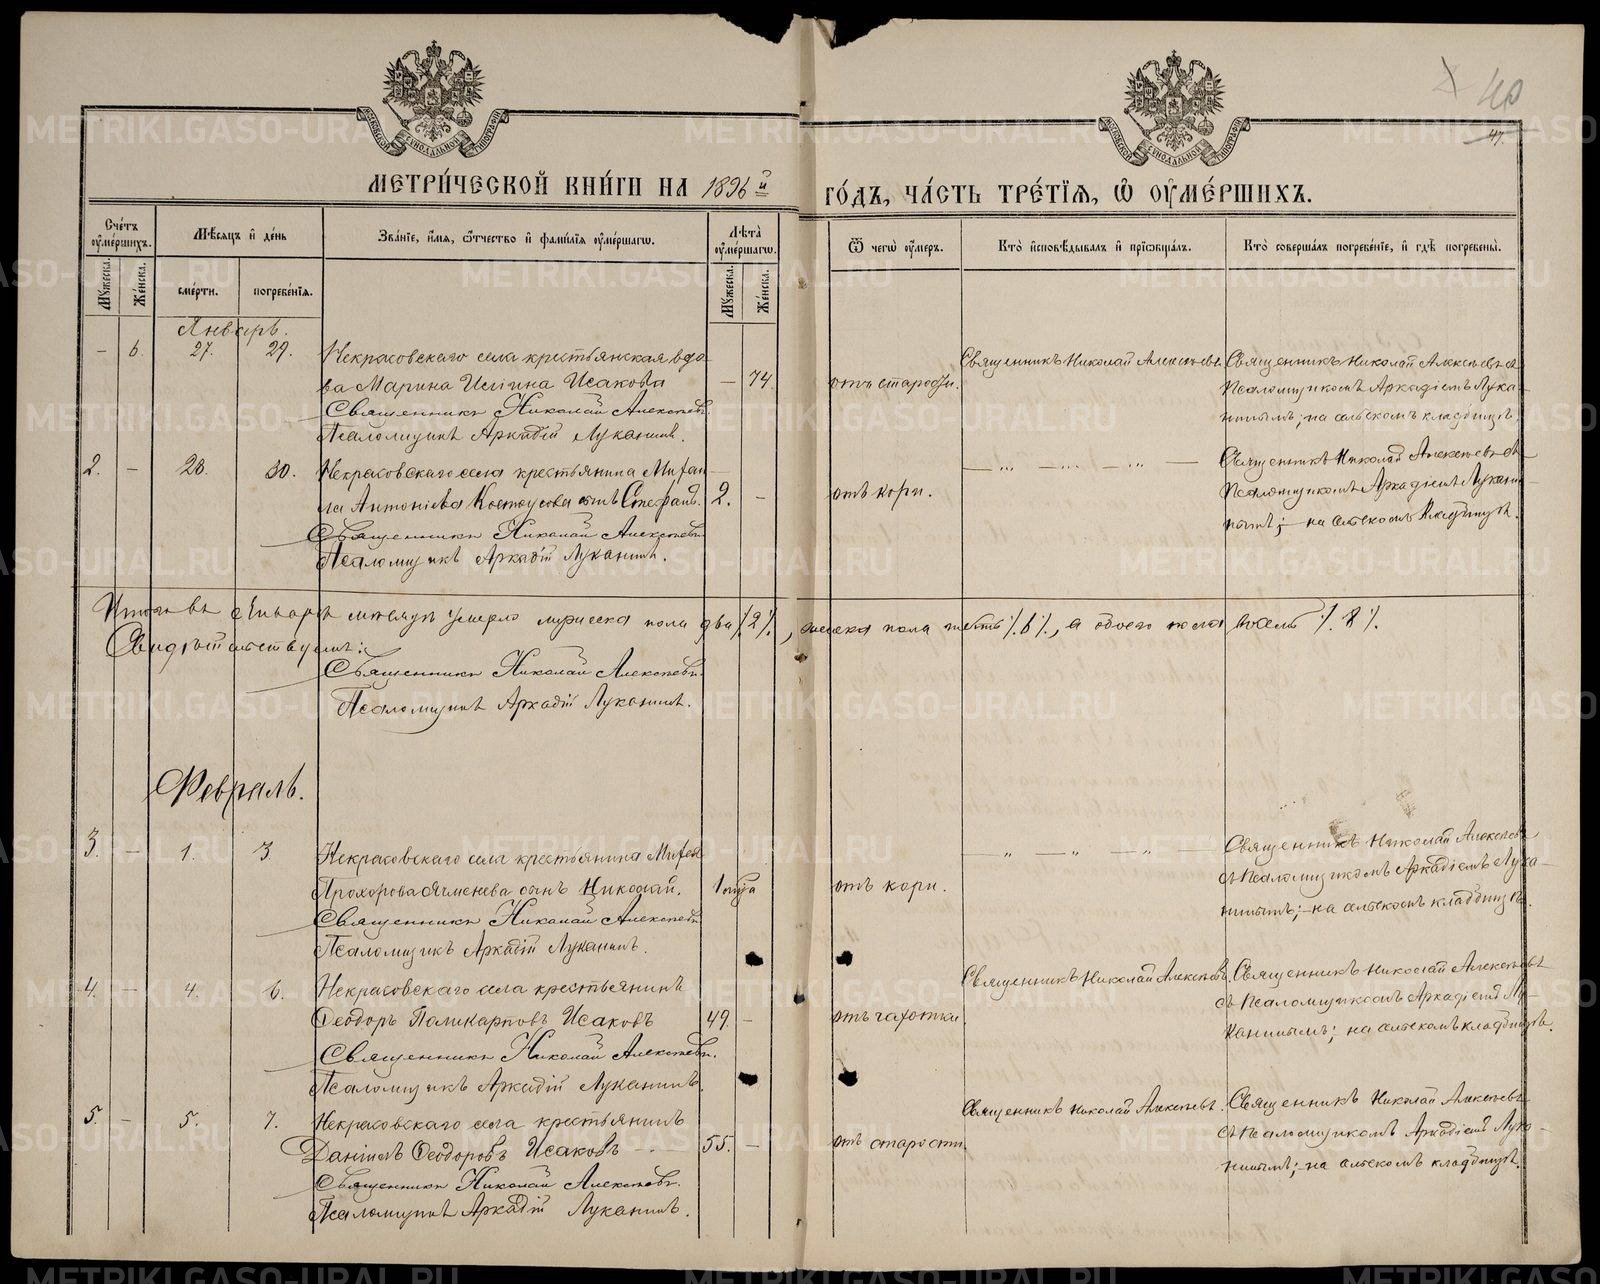 40
47.
МОСКОВСКОЙ СѴНОДАЛЬНОЙ ТИПОГРАФІИ
МОСКОВСКОЙ СѴНОДАЛЬНОЙ ТИПОГРАФІИ
МЕТРИ́ЧЕСКОЙ КНИ́ГИ НА 1896й ГО́ДЪ, ЧА́СТЬ ТРЕ́ТІѦ, Ѡ҆ ОУ҆МЕ́РШИХЪ.
Сче́тъ оу҆ме́ршихъ.
Мꙋжеска.
Же́нска.
Мѣ́сяцъ и҆ де́нь
сме́рти.
погребе́нїѧ.
Зва́нїе, и҆́мѧ, ѻ҆́тчество и҆ фами́лїѧ оу҆ме́ршагѡ.
Лѣ́та оу҆ме́ршагѡ.
Мꙋжеска.
Же́нска.
Ѿ чегѡ̀ оу҆́меръ.
Кто̀ и҆сповѣ́дывалъ и҆ прїѡбща́лъ.
Кто̀ соверша́лъ погребе́нїе, и҆ гдѣ̀ погребены̀.
Январь.
– 6. 27. 29. Некрасовскаго села крестьянская вдо-
ва Марина Ильина Исакова — 74. отъ старости.
Священникъ Николай Алексѣевъ.
Псаломщикъ Аркадій Луканинъ.
Священникъ Николай Алексѣевъ.
Священникъ Николай Алексѣевъ съ
Псаломщикомъ Аркадіемъ Лука-
нинымъ; на сельскомъ кладбищѣ.
2. – 28. 30. Некрасовскаго села крестьянина Михаи-
ла Антоніева Костоусова сынъ Стефанъ. 2. – отъ кори.
Священникъ Николай Алексѣевъ.
Псаломщикъ Аркадій Луканинъ.
— „ — „ — „ —
Священникъ Николай Алексѣевъ съ
Псаломщикомъ Аркадіемъ Лукани-
нымъ; – на сельскомъ кладбищѣ.
Итого въ Январѣ мѣсяцѣ умерло мужеска пола два ⁒2⁒, женска пола шесть ⁒6⁒, а обоего пола восемь ⁒8⁒.
Свидѣтельствуемъ:
Священникъ Николай Алексѣевъ.
Псаломщикъ Аркадій Луканинъ.
Февраль.
3. – 1. 3. Некрасовскаго села крестьянина
Прохорова Ячменева сынъ Николай. 1 отъ кори.
Священникъ Николай Алексѣевъ
Псаломщикъ Аркадій Луканинъ.
— „ — „ — „ —
Священникъ Николай Алексѣевъ
съ Псаломщикомъ Аркадіемъ Лука-
нинымъ; – на сельскомъ кладбищѣ.
4. – 4. 6. Некрасовскаго села крестьянинъ
Ѳеодоръ Поликарповъ Исаковъ 49. – отъ чахотки
Священникъ Николай Алексѣевъ.
Псаломщикъ Аркадій Луканинъ.
Священникъ Николай Алексѣевъ.
Священникъ Николай Алексѣевъ
съ Псаломщикомъ Аркадіемъ Лу-
канинымъ; на сельскомъ кладбищѣ.
5. – 5. 7. Некрасовскаго села крестьянинъ
Даніилъ Ѳеодоровъ Исаковъ 55. – отъ старости.
Священникъ Николай Алексѣевъ.
Псаломщикъ Аркадій Луканинъ.
Священникъ Николай Алексѣевъ.
Священникъ Николай Алексѣевъ
съ Псаломщикомъ Аркадіемъ Лука-
нинымъ; – на сельскомъ кладбищѣ.
METRIKI.GASO-URAL.RU